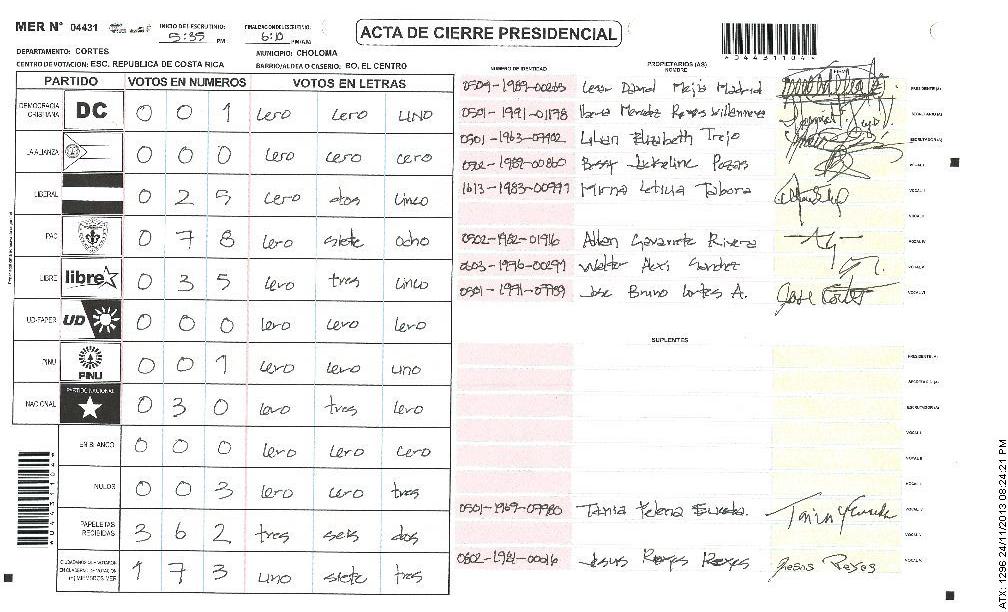 MER N° 04431
INICIO DEL ESCRUTINIO: 5:35 PM
FINALIZACION DEL ESCRUTINIO: 6:10 PM/AM
ACTA DE CIERRE PRESIDENCIAL
DEPARTAMENTO: CORTES
MUNICIPIO: CHOLOMA
CENTRO DE VOTACION: ESC. REPUBLICA DE COSTA RICA
BARRIO/ALDEA O CASERIO: BO. EL CENTRO
PARTIDO VOTOS EN NUMEROS VOTOS EN LETRAS
DEMOCRACIA CRISTIANA DC 0 0 1 Cero Cero UNO
LA ALIANZA 0 0 0 Cero cero cero
LIBERAL 0 2 5 Cero dos Cinco
PAC 0 7 8 Cero siete Ocho
LIBRE libre 0 3 5 Cero tres Cinco
UD-FAPER UD 0 0 0 Cero Cero Cero
PINU PINU 0 0 1 Cero Cero uno
NACIONAL PARTIDO NACIONAL 0 3 0 Cero tres Cero
EN BLANCO 0 0 0 Cero Cero Cero
NULOS 0 0 3 Cero Cero tres
PAPELETAS RECIBIDAS 3 6 2 tres seis dos
1 7 3 uno siete tres
NUMERO DE IDENTIDAD
PROPIETARIOS (AS)
NOMBRE
FIRMA
David Mejia Madrid PRESIDENTE (A)
0501-1991-01178 SECRETARIO (A)
0501-1963-07902 Lilian Elizabeth Trejo ESCRUTADOR (A)
0502-1989-00860 VOCAL I
1613-1983-00997 Mirna Leticia Tabora VOCAL II
0502-1982-01916 Allan Navarrete Rivera VOCAL IV
0603-1976-00297 Walter Alexi Sanchez VOCAL V
0501-1971-07739 Jose Bruno Cortes A. Jose Cortes VOCAL VI
SUPLENTES
PRESIDENTE (A)
SECRETARIO (A)
ESCRUTADOR (A)
VOCAL I
VOCAL II
0501-1969-07980 Tania Yelena
0502-1981-00016 Jesus Reyes Reyes Jesus Reyes
0 4 4 3 1 1 0 4 4
ATX: 1296 24/11/2013 08:24:21 PM